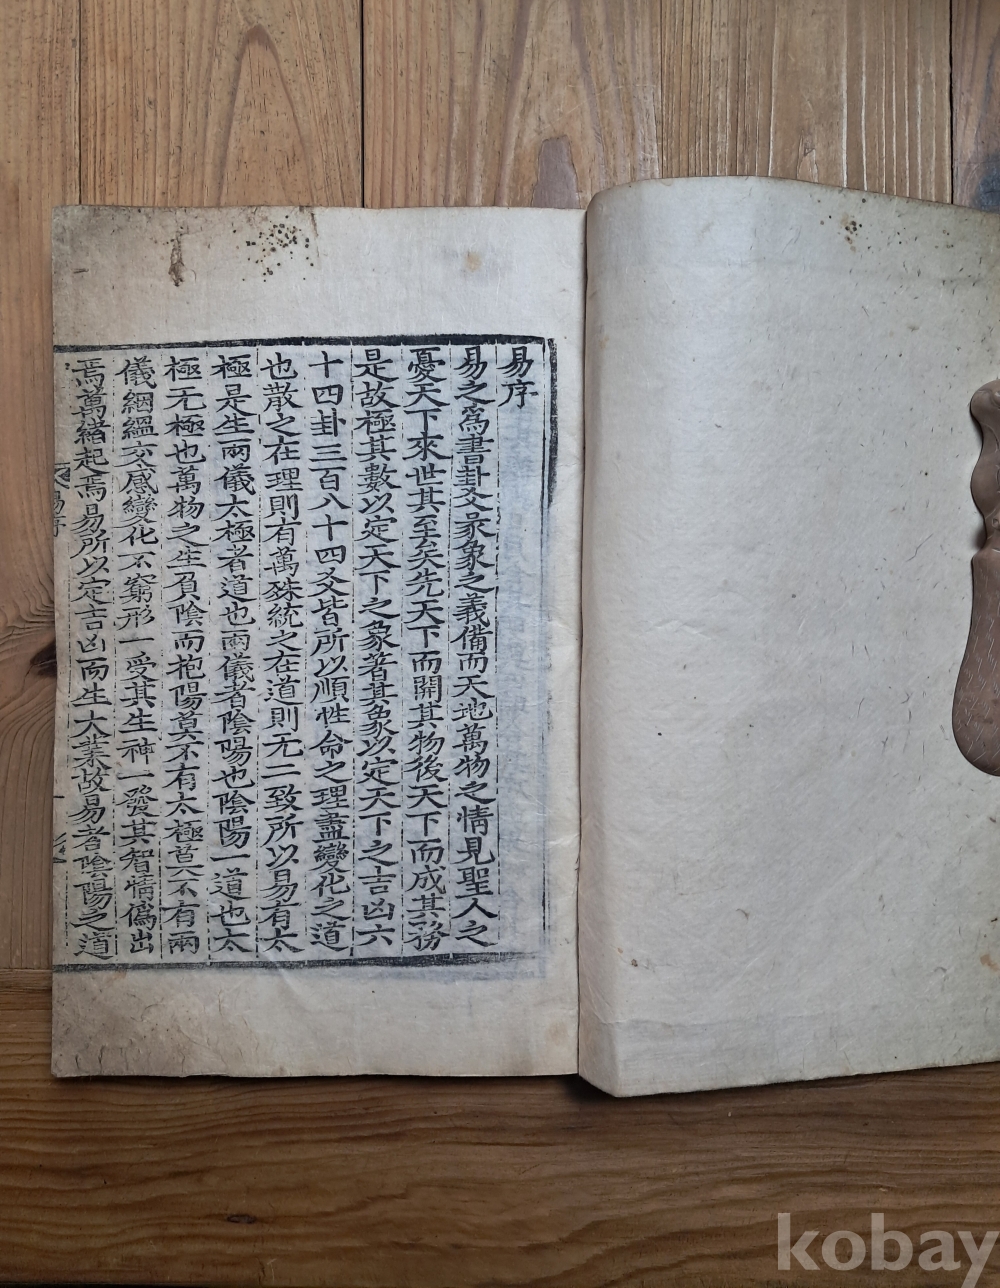 易序
易之爲書卦爻彖象之義備而天地萬物之情見聖人之
憂天下來世其至矣先天下而開其物後天下而成其務
是故極其數以定天下之象著其象以定天下之吉凶六
十四卦三百八十四爻皆所以順性命之理盡變化之道
也散之在理則有萬殊統之在道則无二致所以易有太
極是生兩儀太極者道也兩儀者陰陽也陰陽一道也太
極无極也萬物之生負陰而抱陽莫不有太極莫不有兩
儀絪縕交感變化不窮形一受其生神一發其智情僞出
焉萬緒起焉易所以定吉凶而生大業故易者陰陽之道
易序
kobay